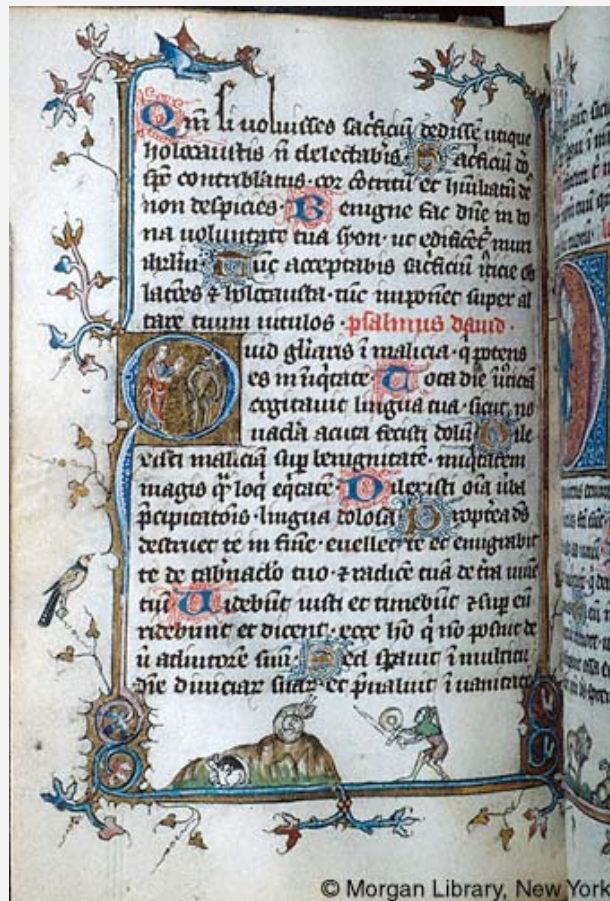 Qm̄ si voluisses sac̄ficiū dedissē utique
holocaustis n̄ delectab̄is. Sac̄ficiū dō
sp̄c contriblatus. cor c̄ōtritū et hūiliatū d̄e
non despicies. Benigne fac dn̄e in bo
na voluntate tua syon. ut edificet̄ muri
ihrlm̄. Tūc acceptabis sac̄ficiū iusticie ob
lac̄ōes ⁊ holocausta. tūc imponēt super al
tare tuum vitulos. psalmus david.
Quid gl̄iaris ī malicia. q̄ potens
es in iniq̄tate. Tota die iniusticiā
cogitavit lingua tua. sicut no
vacl̄a acuta fecisti dolū. Dile
xisti maliciā sup̄ benignitatē. iniq̄tatem
magis q̄ loq̄ eq̄tatē. Dilexisti oīa v̄ba
p̄cipitatōis. lingua dolosa. Propterea ds̄
destruet te in finē. evellet te et emigrabit
te de tab̄nac̄lo tuo. ⁊ radicē tuā de t̄ra vivē
tiū. Videbūt iusti et timebūt ⁊ sup̄ eū
ridebunt et dicent. ecce hō q̄ nō posuit de
ū adiutorē suū. Sed sp̄avit ī multitu
dīe divitiar̄ suar̄. et p̄valuit ī vanitate
© Morgan Library, New York